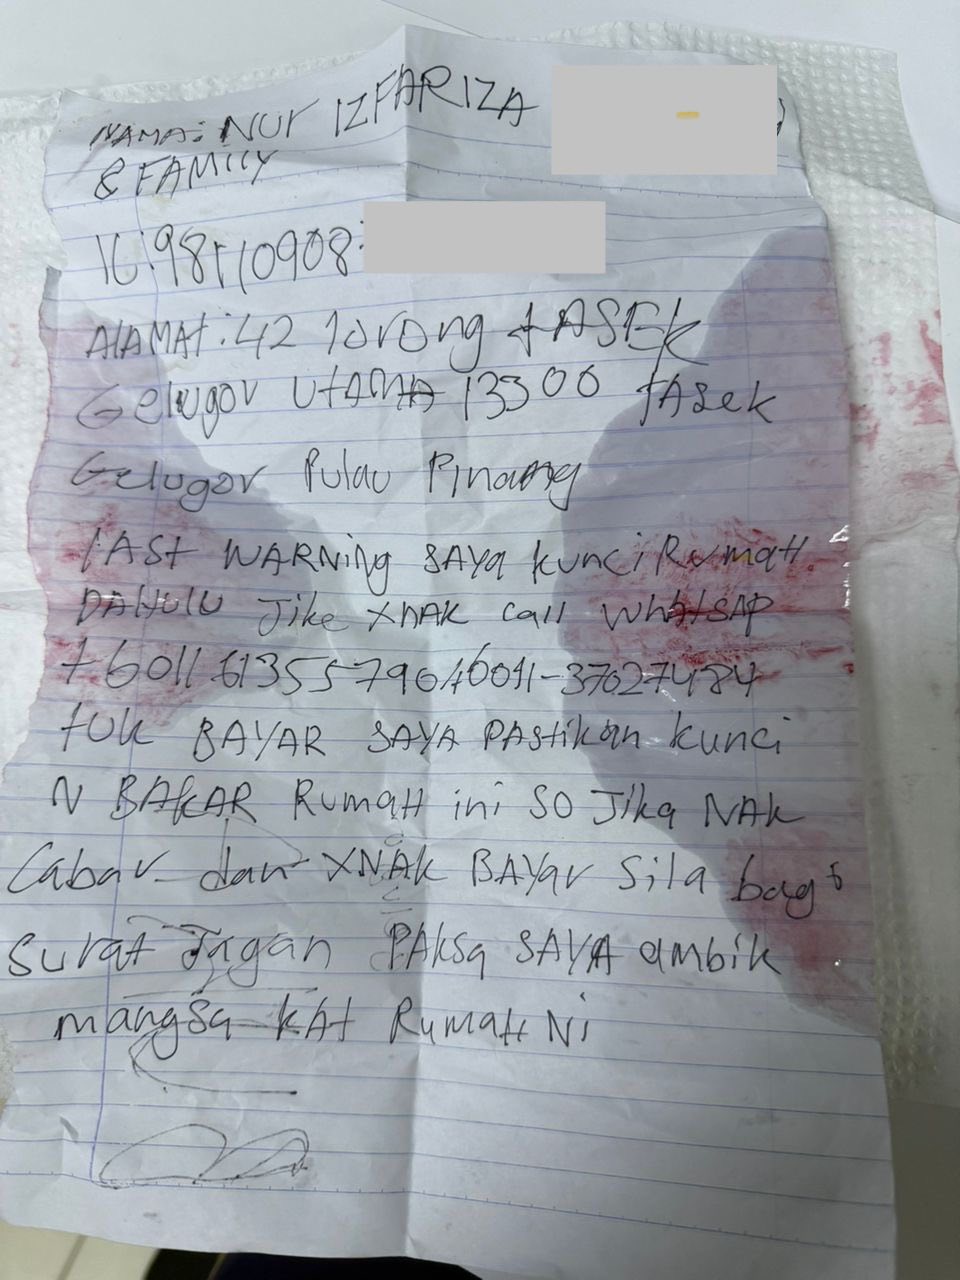 NAMA: NUr IZFARIZA
& FAMILY
IC: 98110908
AlAMAt: 42 lorong tASEk
Gelugor UtAMA 13300 tASek
Gelugor Pulau Pinang
lASt WARNing SAYa kunci RumaH.
DAHULU Jike XNAK Call WhAtSAP
+601161355796/+6011-37027484
tUk BAYAR SAYA PAStikan kunci
N BAkAR RumaH ini SO Jika NAk
Cabar dan XNAk BAYar Sila bagt
Surat Jagan PAksa SAYA ambik
mangsa kAt RumaH Ni